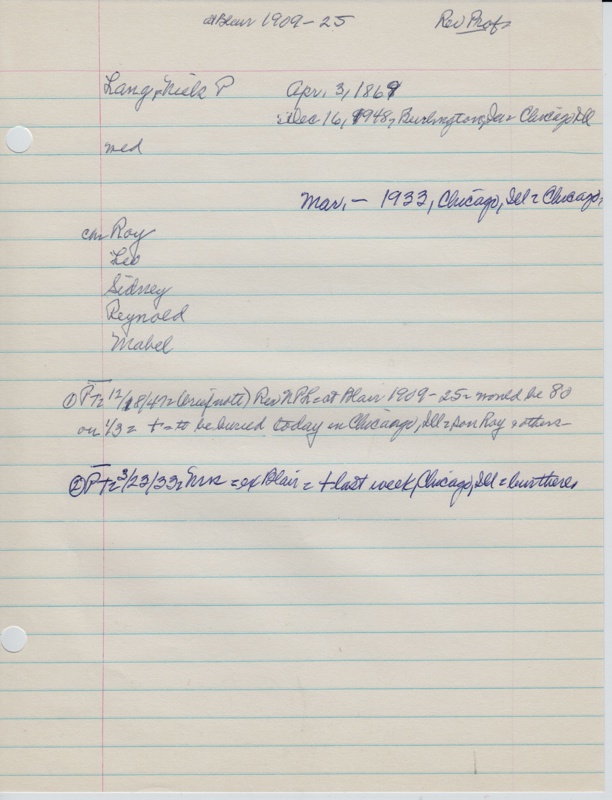 at Blair 1909-25 Rev Prof.
Lang, Niels P Apr. 3, 1869
Dec 16, 1948, Burlington, Ia = Chicago, Ill
wed
Mar. - 1933, Chicago, Ill = Chicago,
cm Roy
Leo
Sidney
Reynold
Mabel
① PT = 12/18/47 = (brief note) Rev NPL = at Blair 1909-25 = would be 80
on 4/3 = + = to be buried today in Chicago, Ill = son Roy + others
② PT = 3/23/33 = Mrs = ex Blair = + last week, Chicago, Ill = bur there